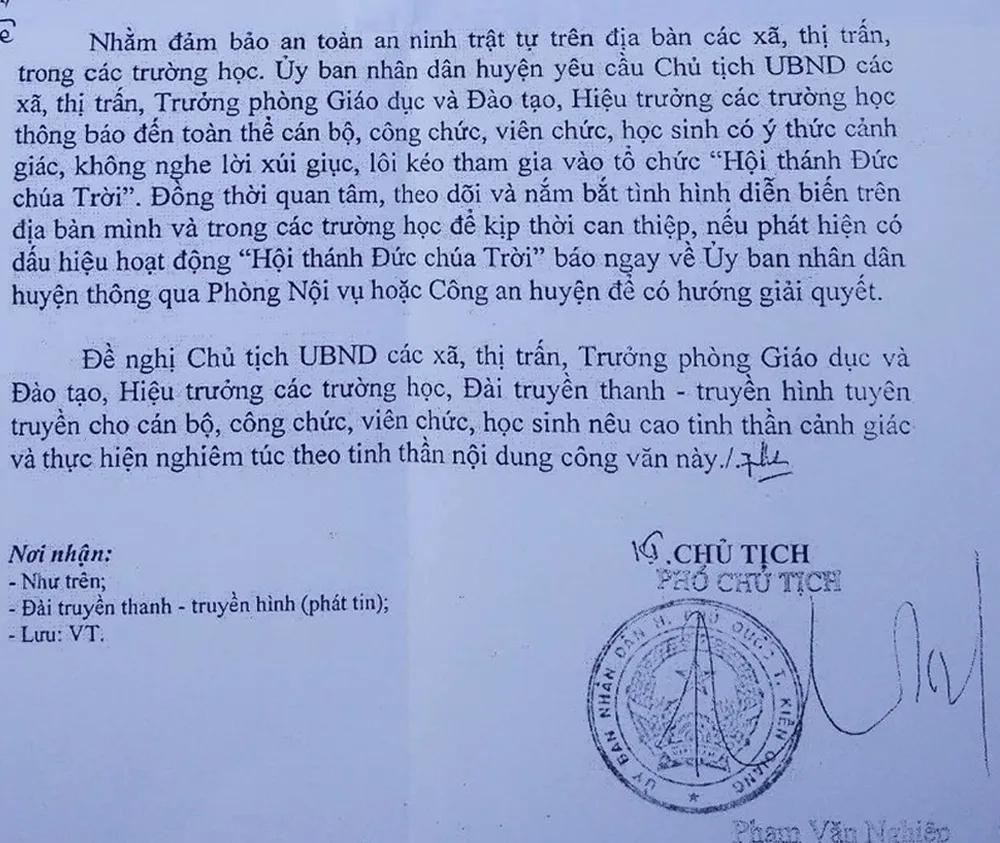 Nhằm đảm bảo an toàn an ninh trật tự trên địa bàn các xã, thị trấn,
trong các trường học. Ủy ban nhân dân huyện yêu cầu Chủ tịch UBND các
xã, thị trấn, Trưởng phòng Giáo dục và Đào tạo, Hiệu trưởng các trường học
thông báo đến toàn thể cán bộ, công chức, viên chức, học sinh có ý thức cảnh
giác, không nghe lời xúi giục, lôi kéo tham gia vào tổ chức “Hội thánh Đức
chúa Trời”. Đồng thời quan tâm, theo dõi và nắm bắt tình hình diễn biến trên
địa bàn mình và trong các trường học để kịp thời can thiệp, nếu phát hiện có
dấu hiệu hoạt động “Hội thánh Đức chúa Trời” báo ngay về Ủy ban nhân dân
huyện thông qua Phòng Nội vụ hoặc Công an huyện để có hướng giải quyết.
Đề nghị Chủ tịch UBND các xã, thị trấn, Trưởng phòng Giáo dục và
Đào tạo, Hiệu trưởng các trường học, Đài truyền thanh - truyền hình tuyên
truyền cho cán bộ, công chức, viên chức, học sinh nêu cao tinh thần cảnh giác
và thực hiện nghiêm túc theo tinh thần nội dung công văn này./.
Nơi nhận:
- Như trên;
- Đài truyền thanh - truyền hình (phát tin);
- Lưu: VT.
KT.CHỦ TỊCH
PHÓ CHỦ TỊCH
ỦY BAN NHÂN DÂN H. PHÚ QUỐC T. KIÊN GIANG
Phạm Văn Nghiệp